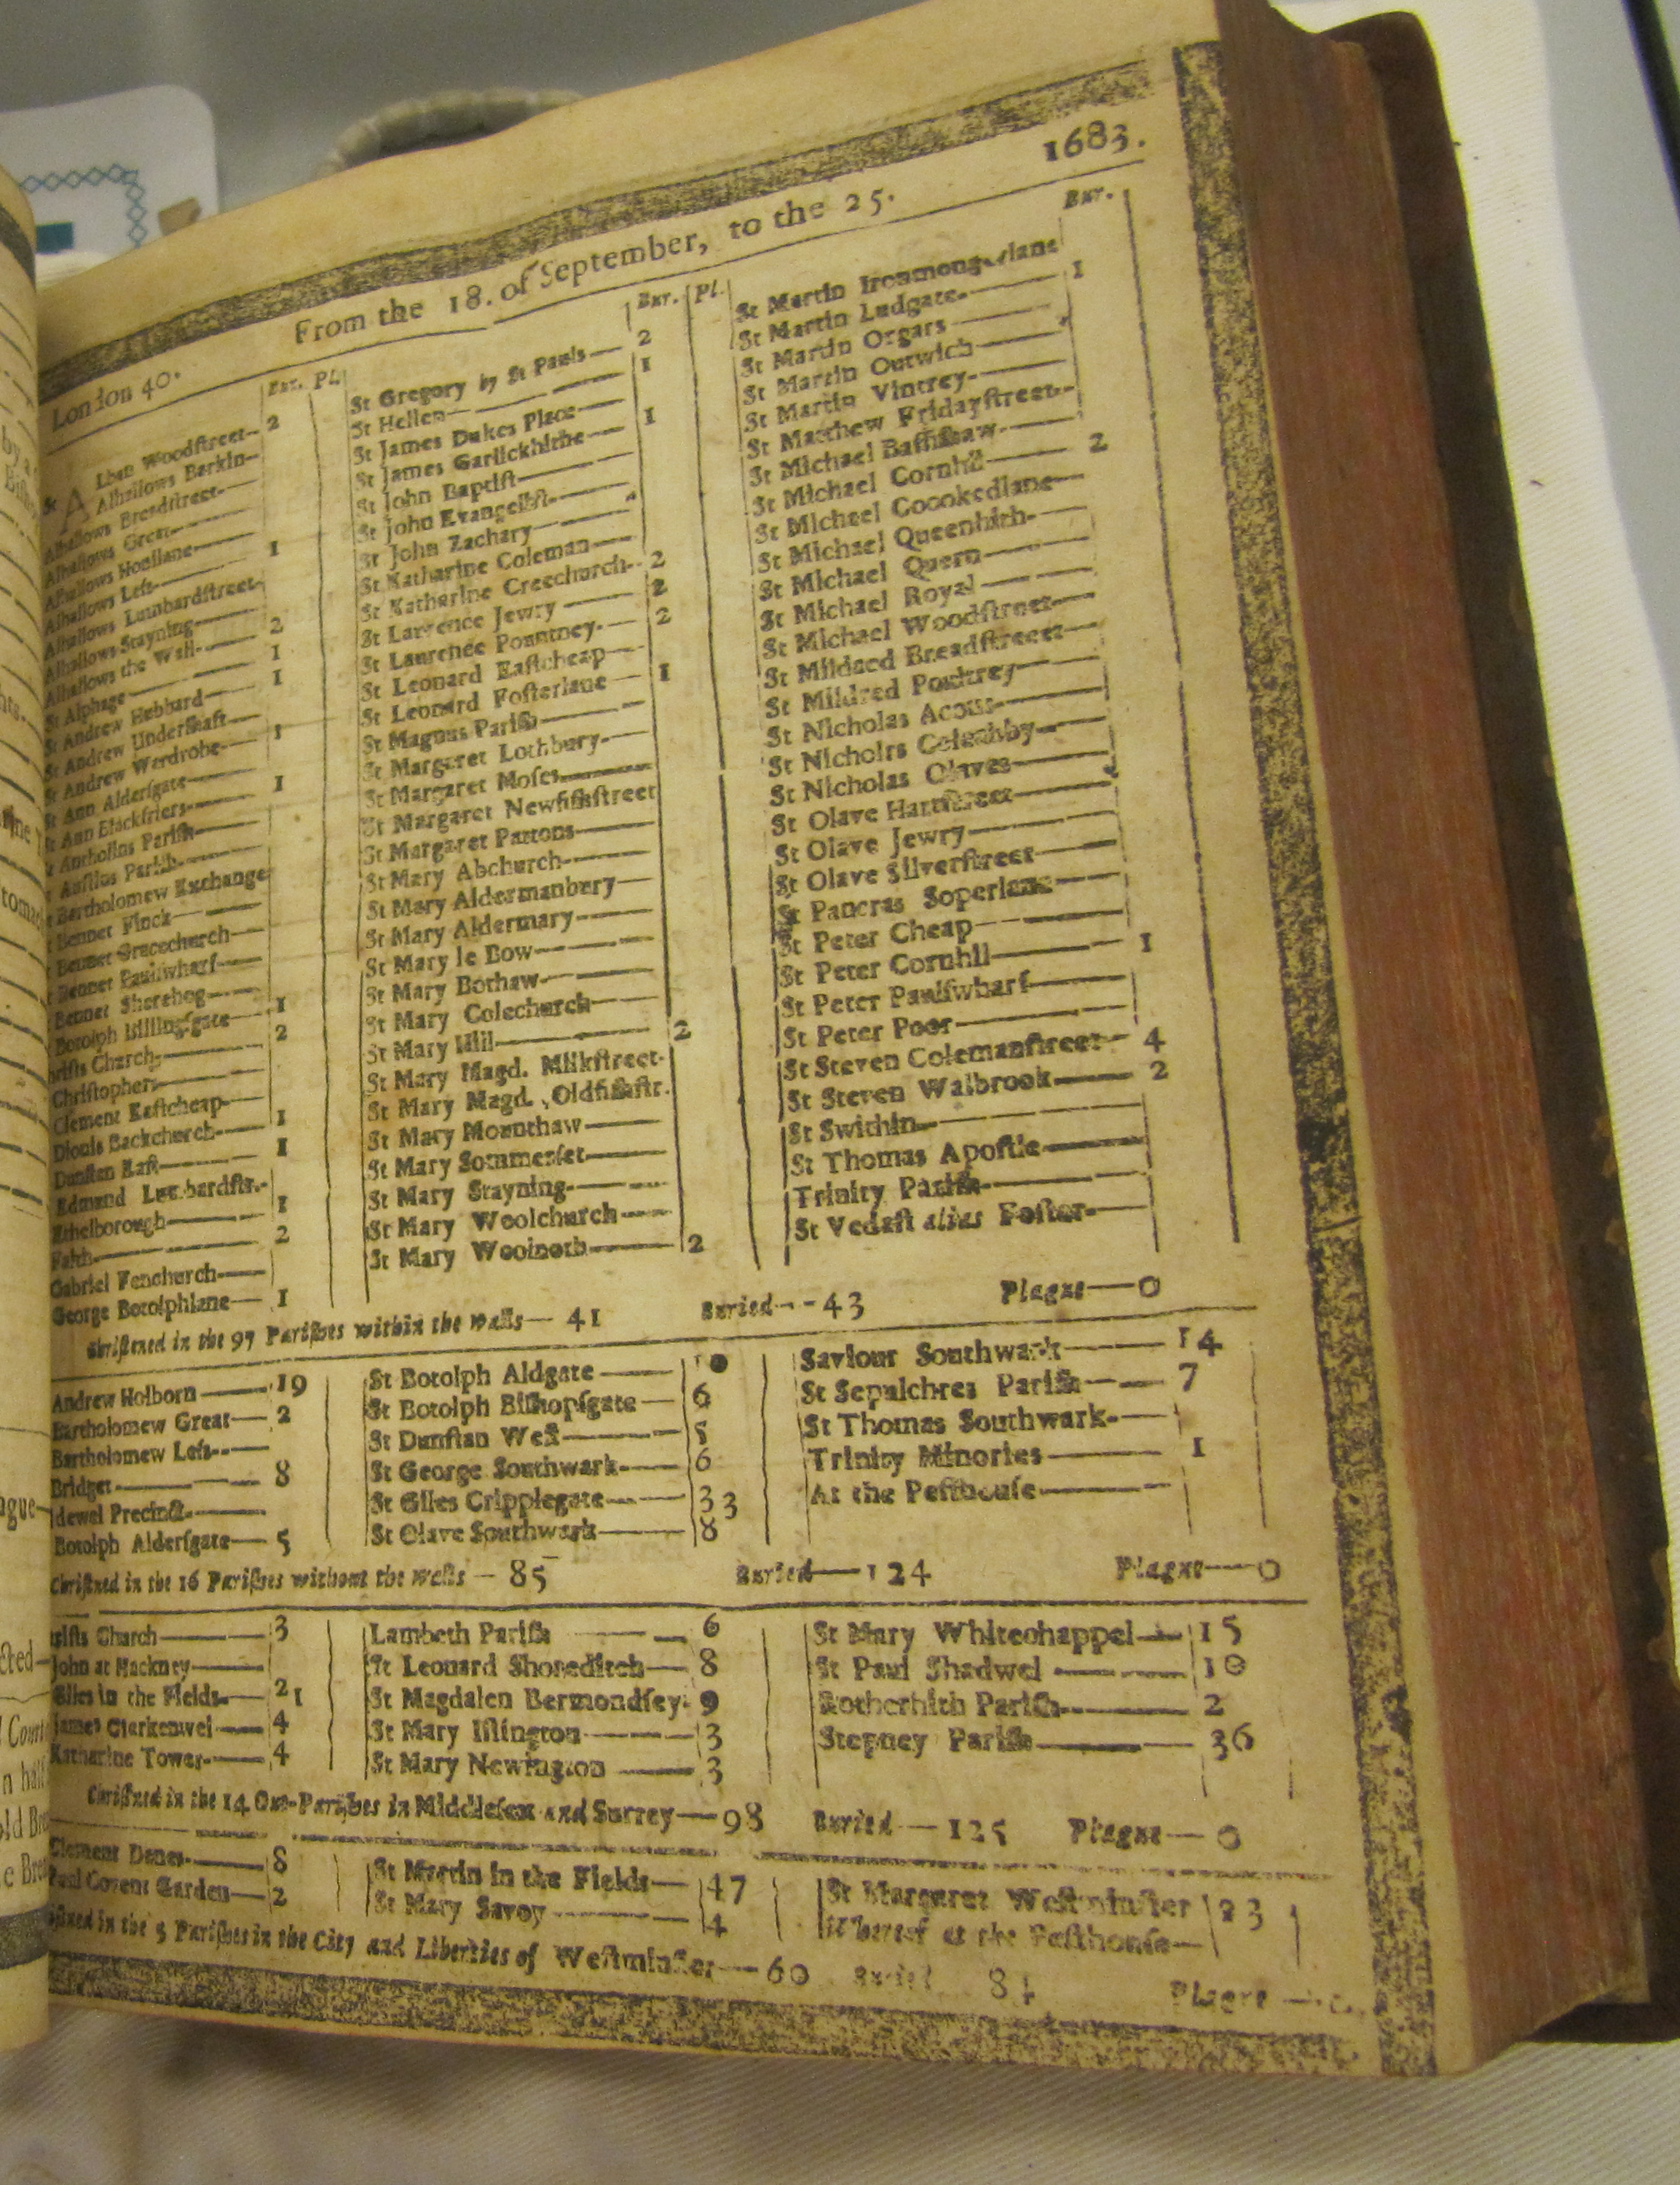 London 40.
From the 18. of September, to the 25.
1683.
Bur. Pl.
St Alban Woodſtreet 2
Alhallows Barkin
Alhallows Breadſtreet
Alhallows Great
Alhallows Honilane
Alhallows Leſs 1
Alhallows Lumbardſtreet
Alhallows Stayning
Alhallows the Wall 2
St Alphage 1
St Andrew Hubbard 1
St Andrew Underſhaft
St Andrew Wardrobe 1
St Ann Alderſgate
St Ann Blackfriers 1
Antholins Pariſh
Auſtins Pariſh
Bartholomew Exchange
Bennet Finck
Bennet Gracechurch
Bennet Paulſwharf
Bennet Sherehog
Botolph Billingſgate 1
Chriſts Church 2
Chriſtophers
Clement Eaſtcheap
Dionis Backchurch 1
Dunſtan Eaſt 1
Edmund Lumbardſtr.
Ethelborough 1
Faith 2
Gabriel Fenchurch
George Botolphlane 1
Bur. Pl.
St Gregory by St Pauls 2
St Hellen 1
St James Dukes Place
St James Garlickhithe 1
St John Baptiſt
St John Evangeliſt
St John Zachary
St Katharine Coleman
St Katharine Creechurch 2
St Lawrence Jewry 2
St Laurence Pountney 2
St Leonard Eaſtcheap
St Leonard Foſterlane 1
St Magnus Pariſh
St Margaret Lothbury
St Margaret Moſes
St Margaret Newfiſhſtreet
St Margaret Pattons
St Mary Abchurch
St Mary Aldermanbury
St Mary Aldermary
St Mary le Bow
St Mary Bothaw
St Mary Colechurch
St Mary Hill 2
St Mary Magd. Milkſtreet
St Mary Magd. Oldfiſhſtr.
St Mary Mounthaw
St Mary Sommerſet
St Mary Stayning
St Mary Woolchurch
St Mary Woolnoth 2
Bur.
St Martin Ironmongerlane
St Martin Ludgate 1
St Martin Orgars
St Martin Outwich
St Martin Vintrey
St Matthew Fridayſtreet
St Michael Baſſiſhaw
St Michael Cornhil 2
St Michael Crookedlane
St Michael Queenhith
St Michael Quern
St Michael Royal
St Michael Woodſtreet
St Mildred Breadſtreet
St Mildred Poultrey
St Nicholas Acons
St Nicholrs Coleabby
St Nicholas Olaves
St Olave Hartſtreet
St Olave Jewry
St Olave Silverſtreet
St Pancras Soperlane
St Peter Cheap
St Peter Cornhil 1
St Peter Paulſwharf
St Peter Poor
St Steven Colemanſtreet 4
St Steven Walbrook 2
St Swithin
St Thomas Apoſtle
Trinity Pariſh
St Vedaſt alias Foſter
Chriſtned in the 97 Pariſhes within the walls — 41 Buried — 43 Plague — 0
Andrew Holborn 19
Bartholomew Great 2
Bartholomew Leſs
Bridget 8
dewel Precinct
Botolph Alderſgate 5
St Botolph Aldgate 10
St Botolph Biſhopſgate 6
St Dunſtan Weſt 5
St George Southwark 6
St Giles Cripplegate 33
St Olave Southwark 8
Saviour Southwark 14
St Sepulchres Pariſh 7
St Thomas Southwark
Trinity Minories 1
At the Peſthouſe
Chriſtned in the 16 Pariſhes without the walls — 85 Buried — 124 Plague — 0
riſts Church 3
John at Hackney
Giles in the Fields 21
James Clerkenwel 4
Katharine Tower 4
Lambeth Pariſh 6
St Leonard Shoreditch 8
St Magdalen Bermondſey 9
St Mary Iſlington 3
St Mary Newington 3
St Mary Whitechappel 15
St Paul Shadwel 10
Rotherhith Pariſh 2
Stepney Pariſh 36
Chriſtned in the 14 Out-Pariſhes in Middleſex and Surrey — 98 Buried — 125 Plague — 0
Clement Danes 8
Paul Covent Garden 2
St Martin in the Fields 47
St Mary Savoy 4
St Margaret Weſtminſter 23
Whereof at the Peſthouſe
iſtned in the 5 Pariſhes in the City and Liberties of Weſtminſter — 60 Buried 84 Plague